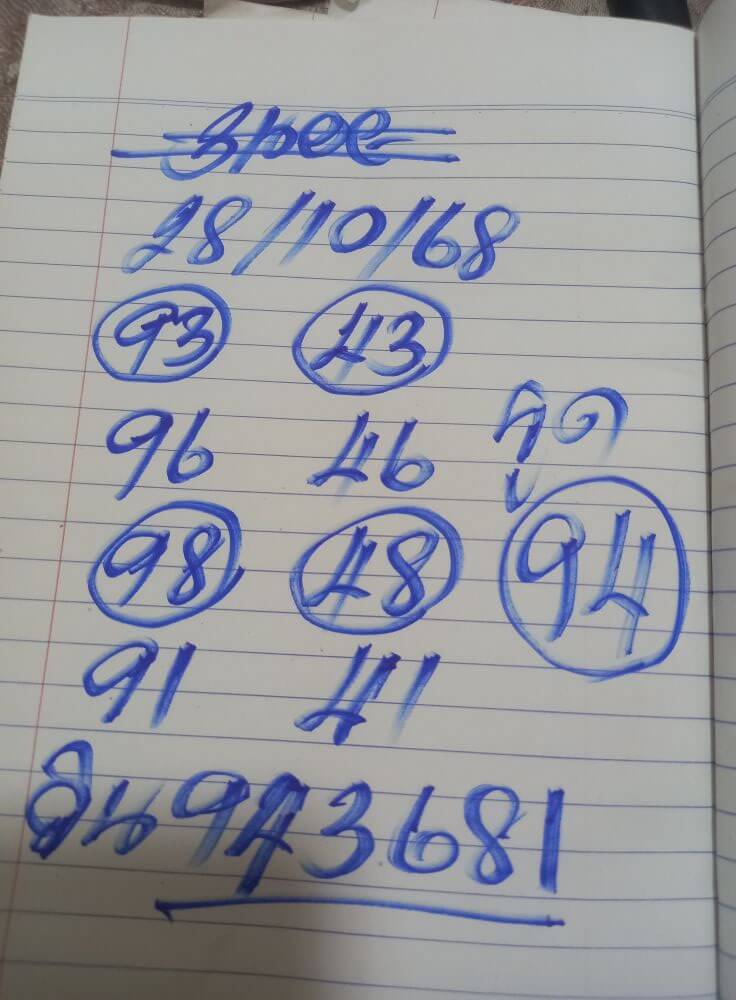 28/10/68
93 43
96 46
รูด
98 48 94
91 41
วิน 943681